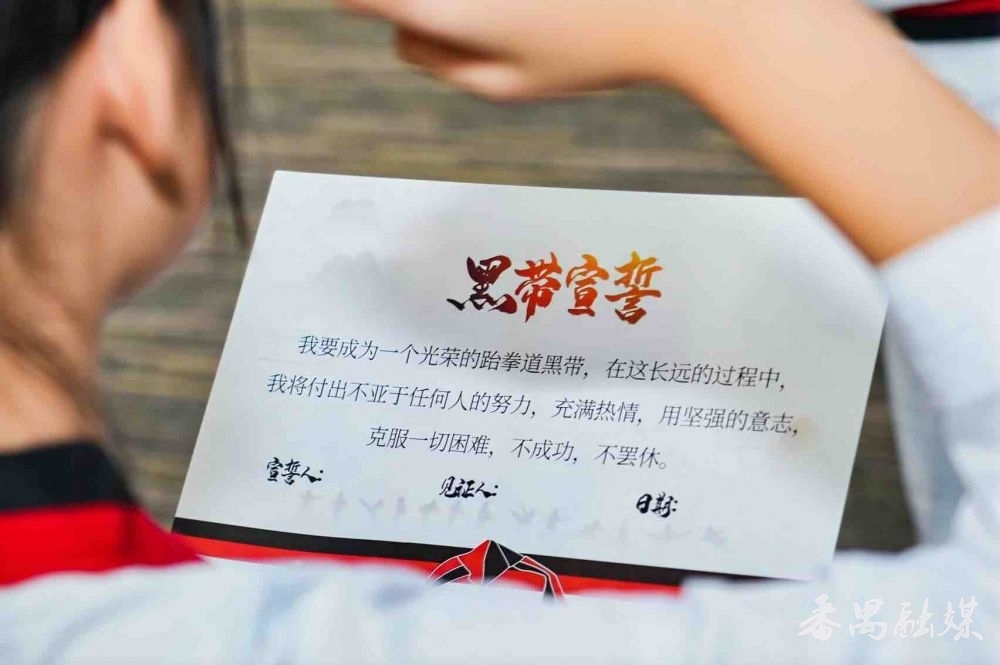 黑带宣誓
我要成为一个光荣的跆拳道黑带，在这长远的过程中，
我将付出不亚于任何人的努力，充满热情，用坚强的意志，
克服一切困难，不成功，不罢休。
宣誓人： 见证人： 日期：
番禺融媒